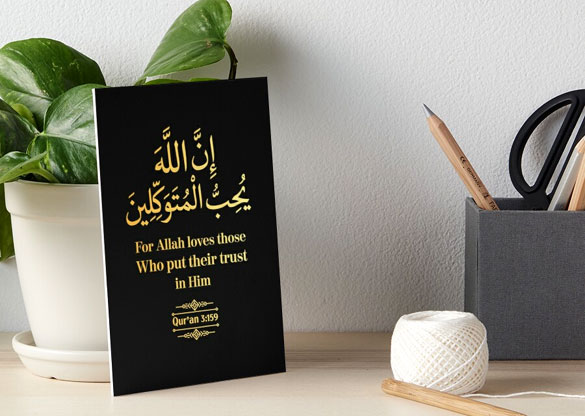 إِنَّ اللَّهَ
يُحِبُّ الْمُتَوَكِّلِينَ
For Allah loves those
Who put their trust
in Him
Qur'an 3:159